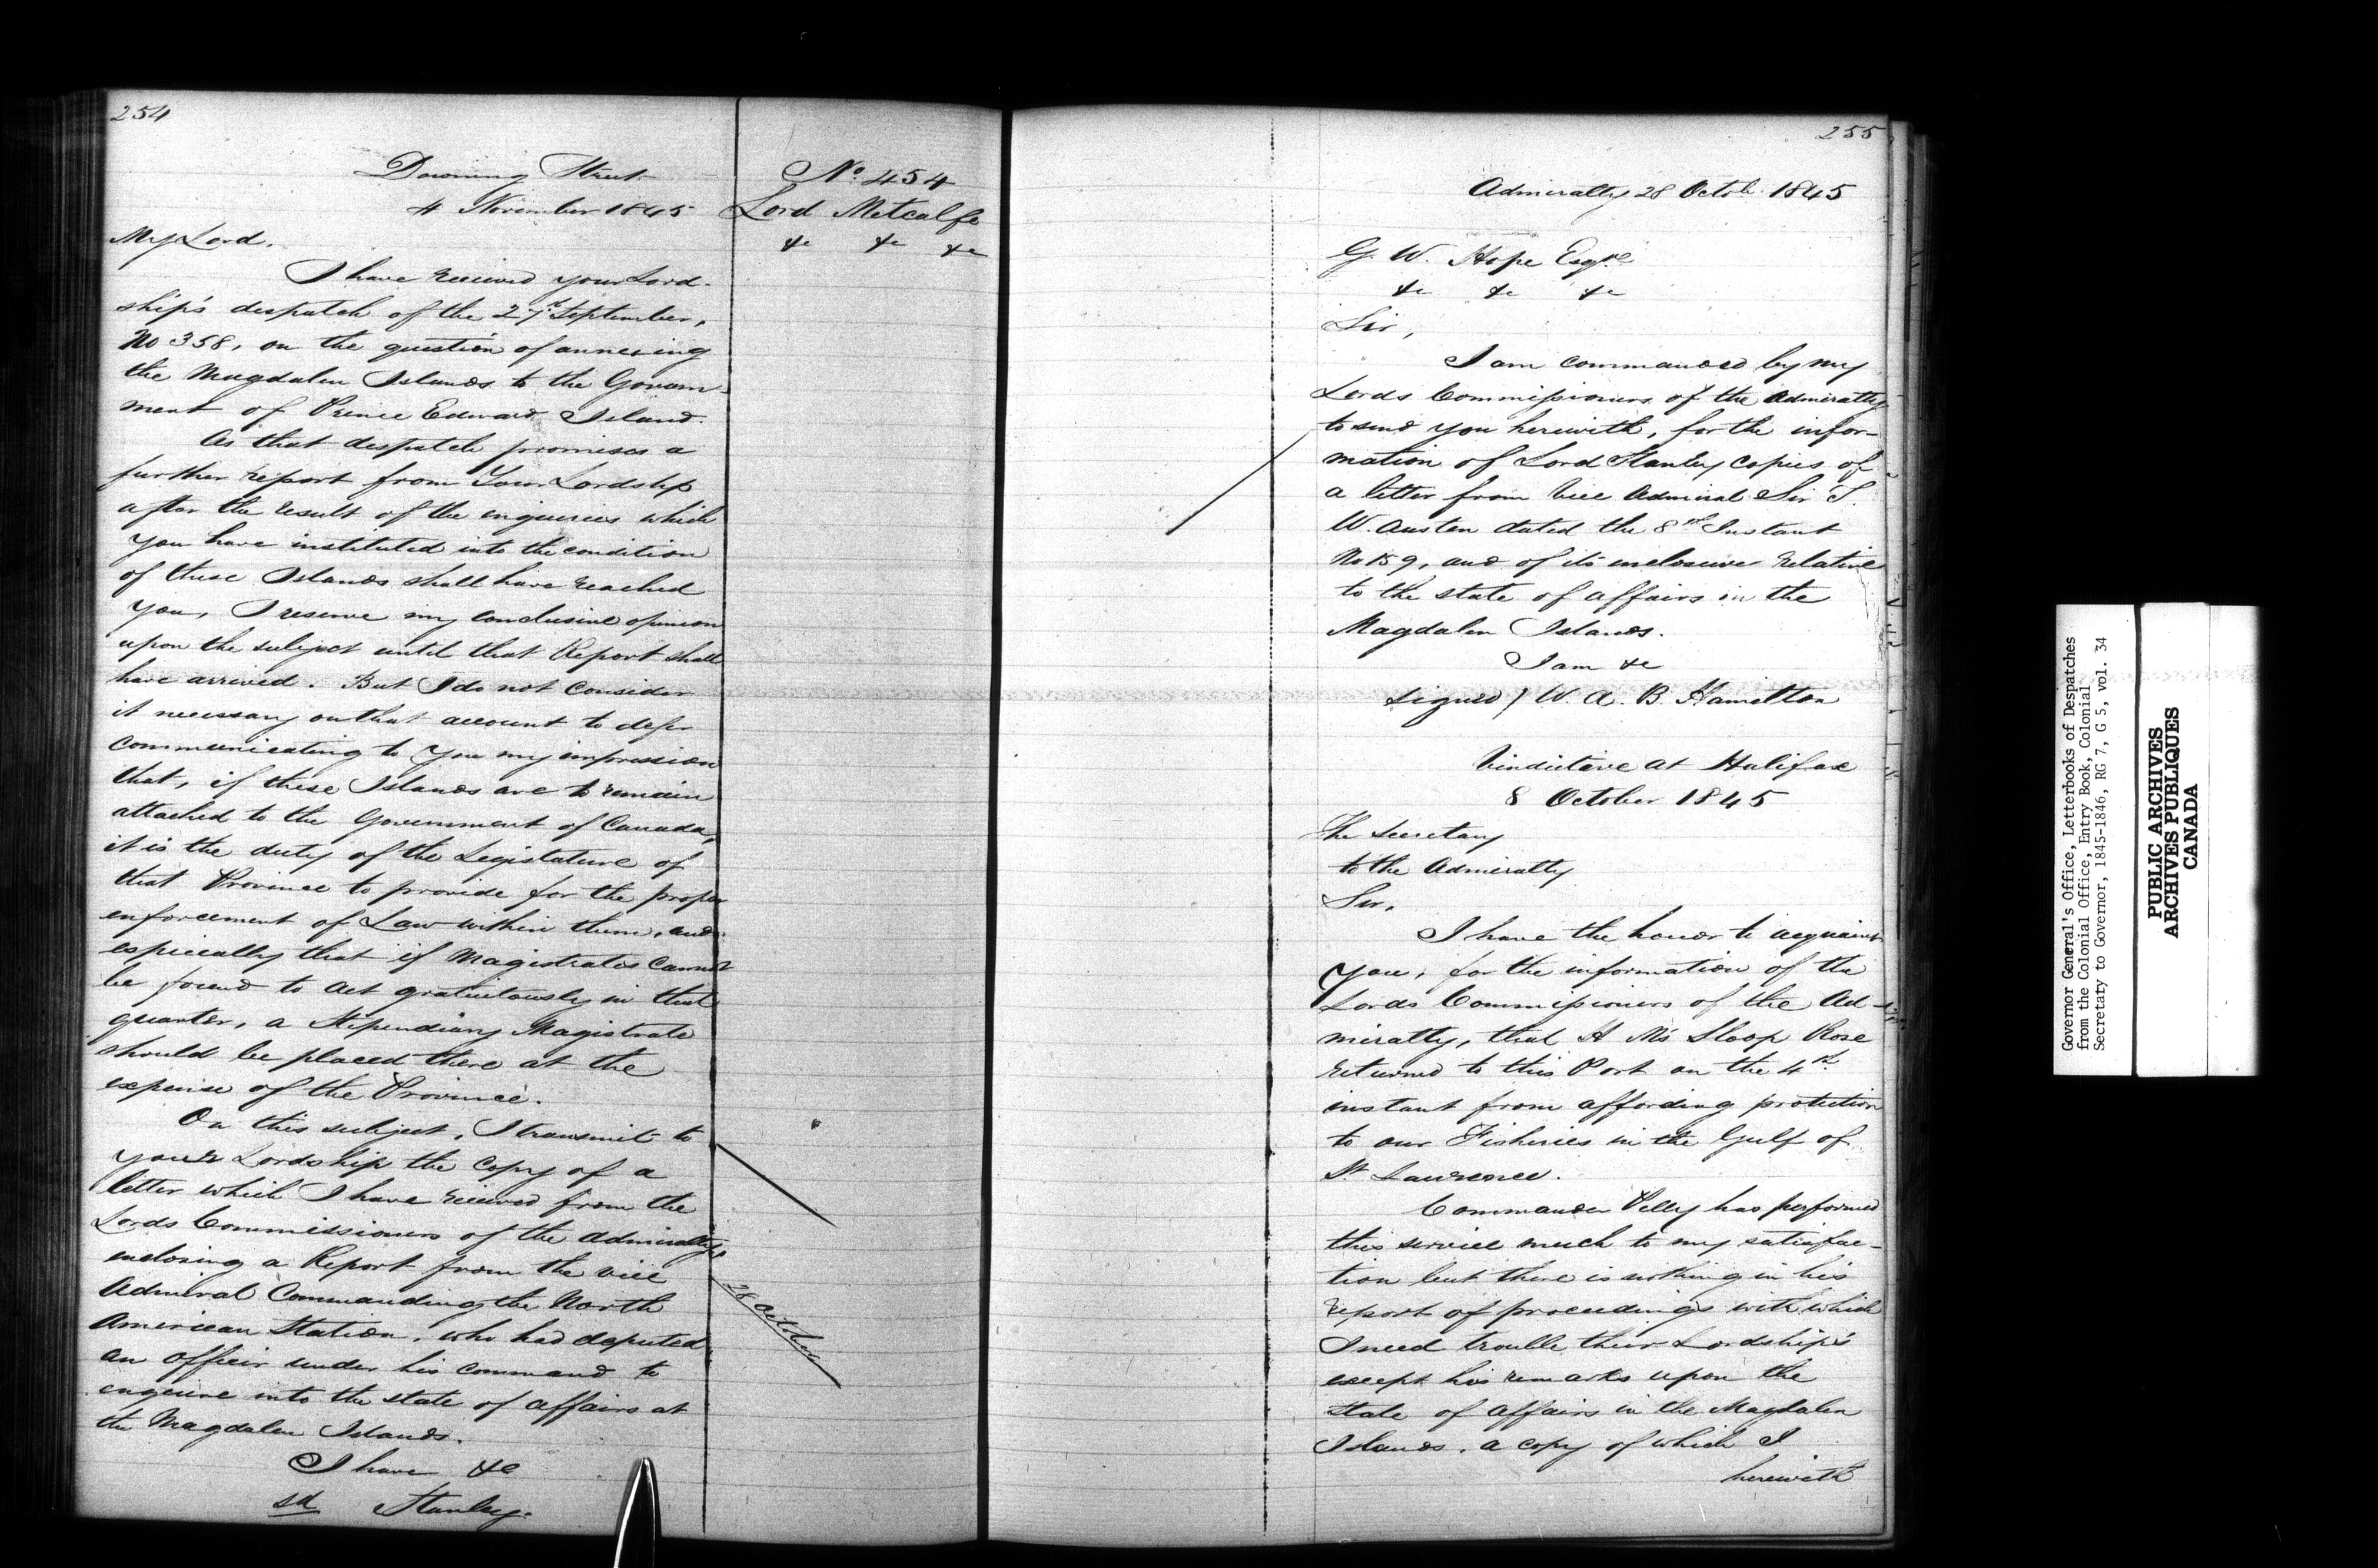 254
Downing Street
4 November 1845
No. 454
Lord Metcalfe
&c &c &c
My Lord.
I have received your Lord-
ship's despatch of the 27th September,
No 358, on the question of annexing
the Magdalen Islands to the Govern-
ment of Prince Edward Island.
As that despatch promises a
further report from Your Lordship
after the result of the enquiries which
you have instituted into the condition
of these Islands shall have reached
you, I reserve my conclusive opinion
upon the subject until that Report shall
have arrived. But I do not consider
it necessary on that account to defer
communicating to you my impression
that, if these Islands are to remain
attached to the Government of Canada,
it is the duty of the Legislature of
that Province to provide for the proper
enforcement of Law within them, and
especially that if Magistrates cannot
be found to act gratuitously in that
quarter, a Stipendiary Magistrate
should be placed there at the
expense of the Province.
On this subject, I transmit to
your Lordship the copy of a
letter which I have received from the
Lords Commissioners of the Admiralty,
enclosing a Report from the Vice
Admiral Commanding the North
American Station, who had deputed
an officer under his command to
enquire into the state of affairs at
the Magdalen Islands.
28 October
I have &c
sd Stanley.
255
Admiralty 28 Octob. 1845
G. W. Hope Esqre
&c &c &c
Sir,
I am commanded by my
Lords Commissioners of the Admiralty
to send you herewith, for the infor-
mation of Lord Stanley copies of
a letter from Vice Admiral Sir
W. Austen dated the 8th Instant
No 159, and of its enclosure relative
to the state of affairs in the
Magdalen Islands.
I am &c
signed / W. A. B. Hamilton
Vindictive at Halifax
8 October 1845
The Secretary
to the Admiralty
Sir,
I have the honor to acquaint
You, for the information of the
Lords Commissioners of the Ad-
miralty, that H M's Sloop Rose
returned to this Port on the 4th
instant from affording protection
to our Fisheries in the Gulf of
St. Lawrence.
Commander Pelly has performed
this service much to my satisfac-
tion but there is nothing in his
report of proceedings with which
I need trouble their Lordships
except his remarks upon the
state of affairs in the Magdalen
Islands, a copy of which I
herewith
Governor General's Office, Letterbooks of Despatches
from the Colonial Office, Entry Book, Colonial
Secretaty to Governor, 1845-1846, RG 7, G 5, vol. 34
PUBLIC ARCHIVES
ARCHIVES PUBLIQUES
CANADA